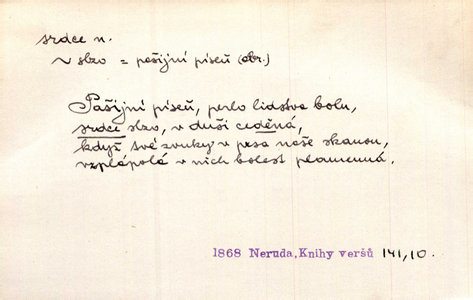 srdce n.
~ slzo = pašijní píseň (obr.)
Pašijní píseň, perlo lidstva bolu,
srdce slzo, v duši ceděná,
když tvé zvuky v prsa naše skanou,
vzplápolá v nich bolest plamenná.
1868 Neruda, Knihy veršů 141,10.